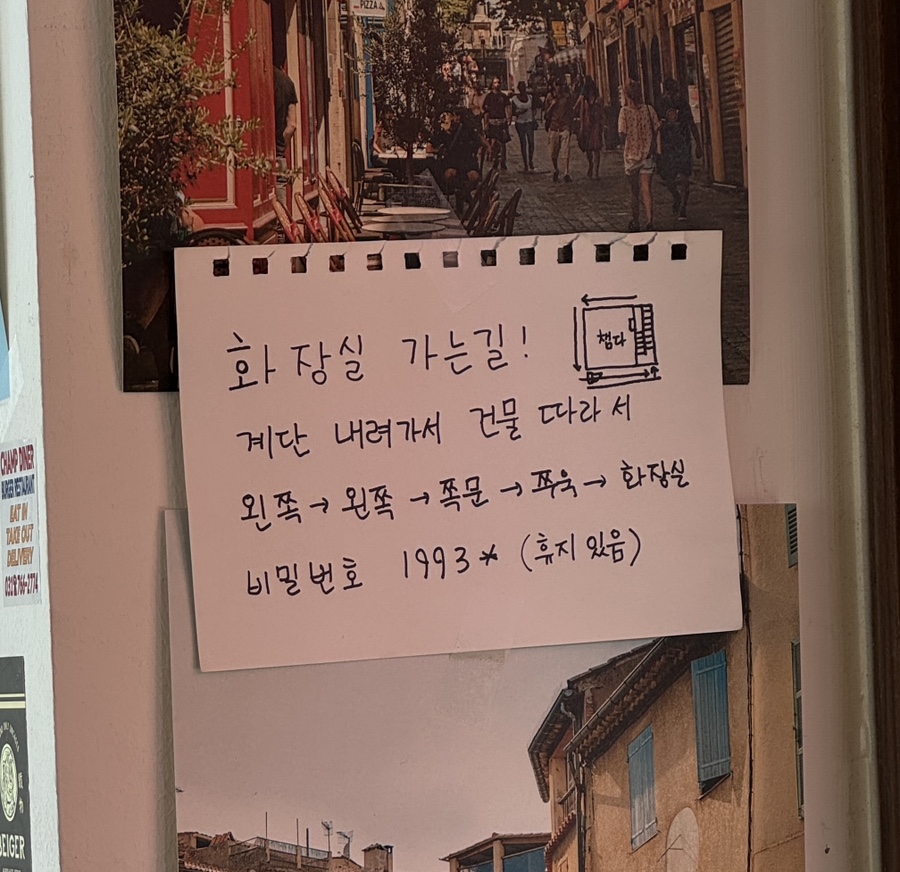 PIZZA
화장실 가는길!
챔다
계단 내려가서 건물 따라서
왼쪽 → 왼쪽 → 쪽문 → 쭈욱 → 화장실
비밀번호 1993* (휴지 있음)
CHAMP DINER
BURGER RESTAURANT
EAT IN
TAKE OUT
DELIVERY
031)766-2774
BEIGER